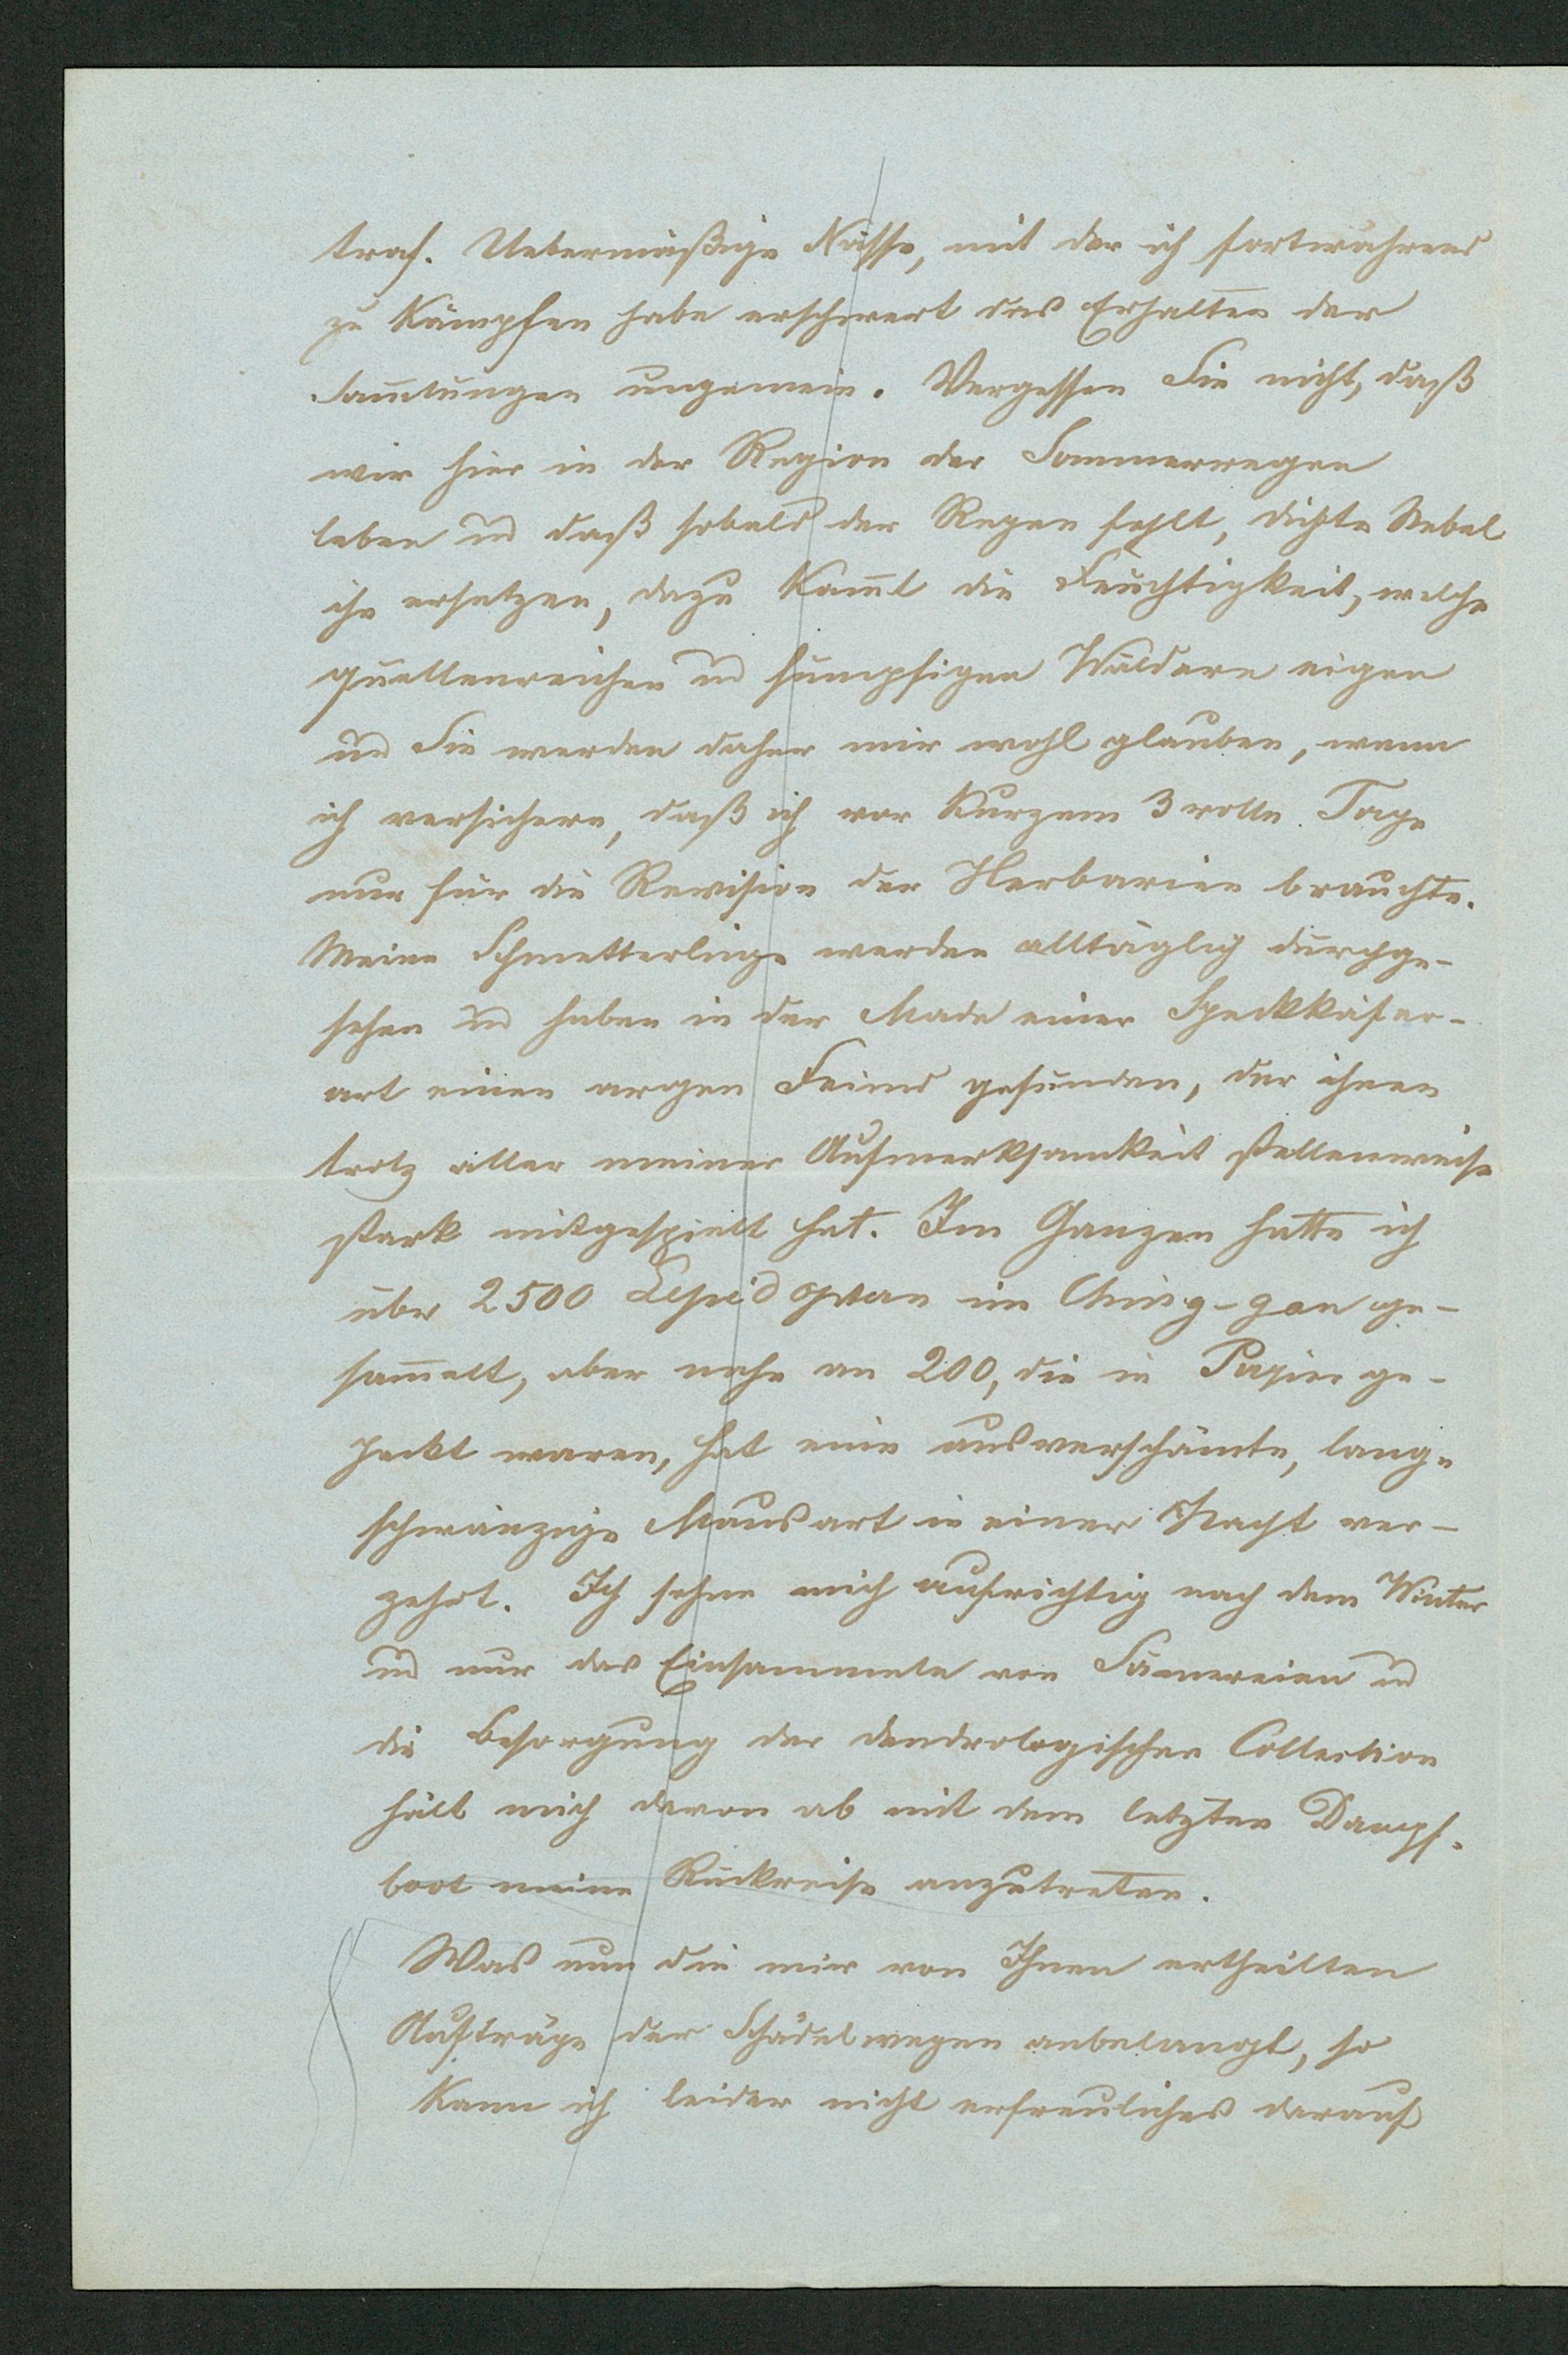 traf. Uebermäßige Nässe, mit der ich fortwährend
zu kämpfen habe erschwert das Erhalten der
Sam̄lungen ungemein. Vergessen Sie nicht, daß
wir hier in der Region der Sommerregen
leben u daß sobald der Regen fehlt, dichte Nebel
ihn ersetzen, dazu kom̄t die Feuchtigkeit, welche
quellenreichen u sumpfigen Wäldern eigen
un Sie werden daher mir wohl glauben, wenn
ich versichere, daß ich vor Kurzem 3 volle Tage
nur für die Revision der Herbarien brauchte.
Meine Schmetterlinge werden alltäglich durchge-
sehen u haben in der Made einer Speckkäfer-
art einen argen Feind gefunden, der ihnen
trotz aller meiner Aufmerksamkeit stellenweise
stark mitgespielt hat. Im Ganzen hatte ich
über 2500 Lepidoptern im Ching-gan ge-
sam̄elt, aber nahe an 200, die in Papier ge-
packt waren, hat eine ausverschämte, lang-
schwänzige Mausart in einer Nacht ver-
zehrt. Ich sehne mich aufrichtig nach dem Winter
u nur das Einsammeln von Sämereien u
die Besorgung der dendrologischen Collection
hält mich davon ab mit dem letzten Dampf-
boot meine Rückreise anzutreten.
Was nun die mir von Ihnen ertheilten
Aufträge der Schädel wegen anbelangt, so
kann ich leider nicht erfreuliches darauf